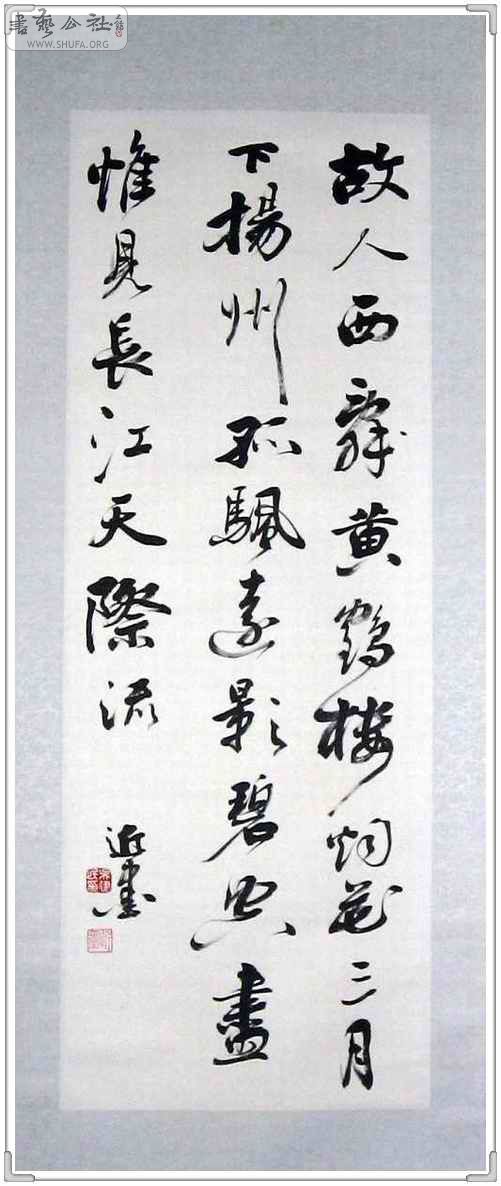 書藝公社
WWW.SHUFA.ORG
故人西辭黄鶴樓烟花三月
下揚州孤颿遠影碧空盡
惟見長江天際流